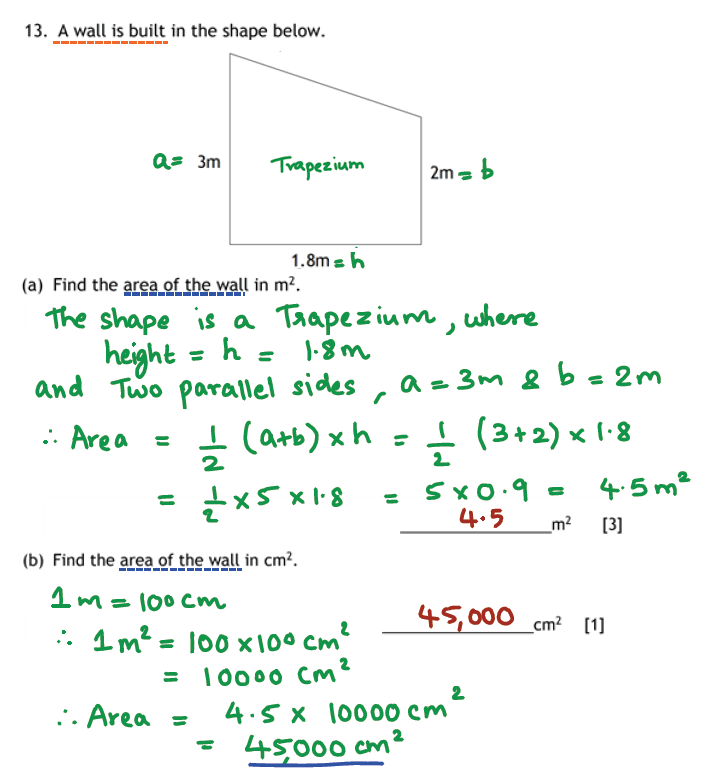 13. A wall is built in the shape below.
a= 3m Trapezium 2m = b
1.8m = h
(a) Find the area of the wall in m².
The shape is a Trapezium, where
height = h = 1.8m
and Two parallel sides, a = 3m & b = 2m
∴ Area = 1/2 (a+b) × h = 1/2 (3+2) × 1.8
= 1/2 × 5 × 1.8 = 5 × 0.9 = 4.5 m²
4.5 m² [3]
(b) Find the area of the wall in cm².
1 m = 100 cm
45,000 cm² [1]
∴ 1 m² = 100 × 100 cm²
= 10000 cm²
∴ Area = 4.5 × 10000 cm²
= 45,000 cm²